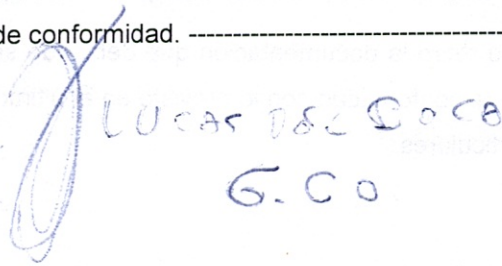 de conformidad. ------------------------------------
LUCAS DEL BOCA
G. CO